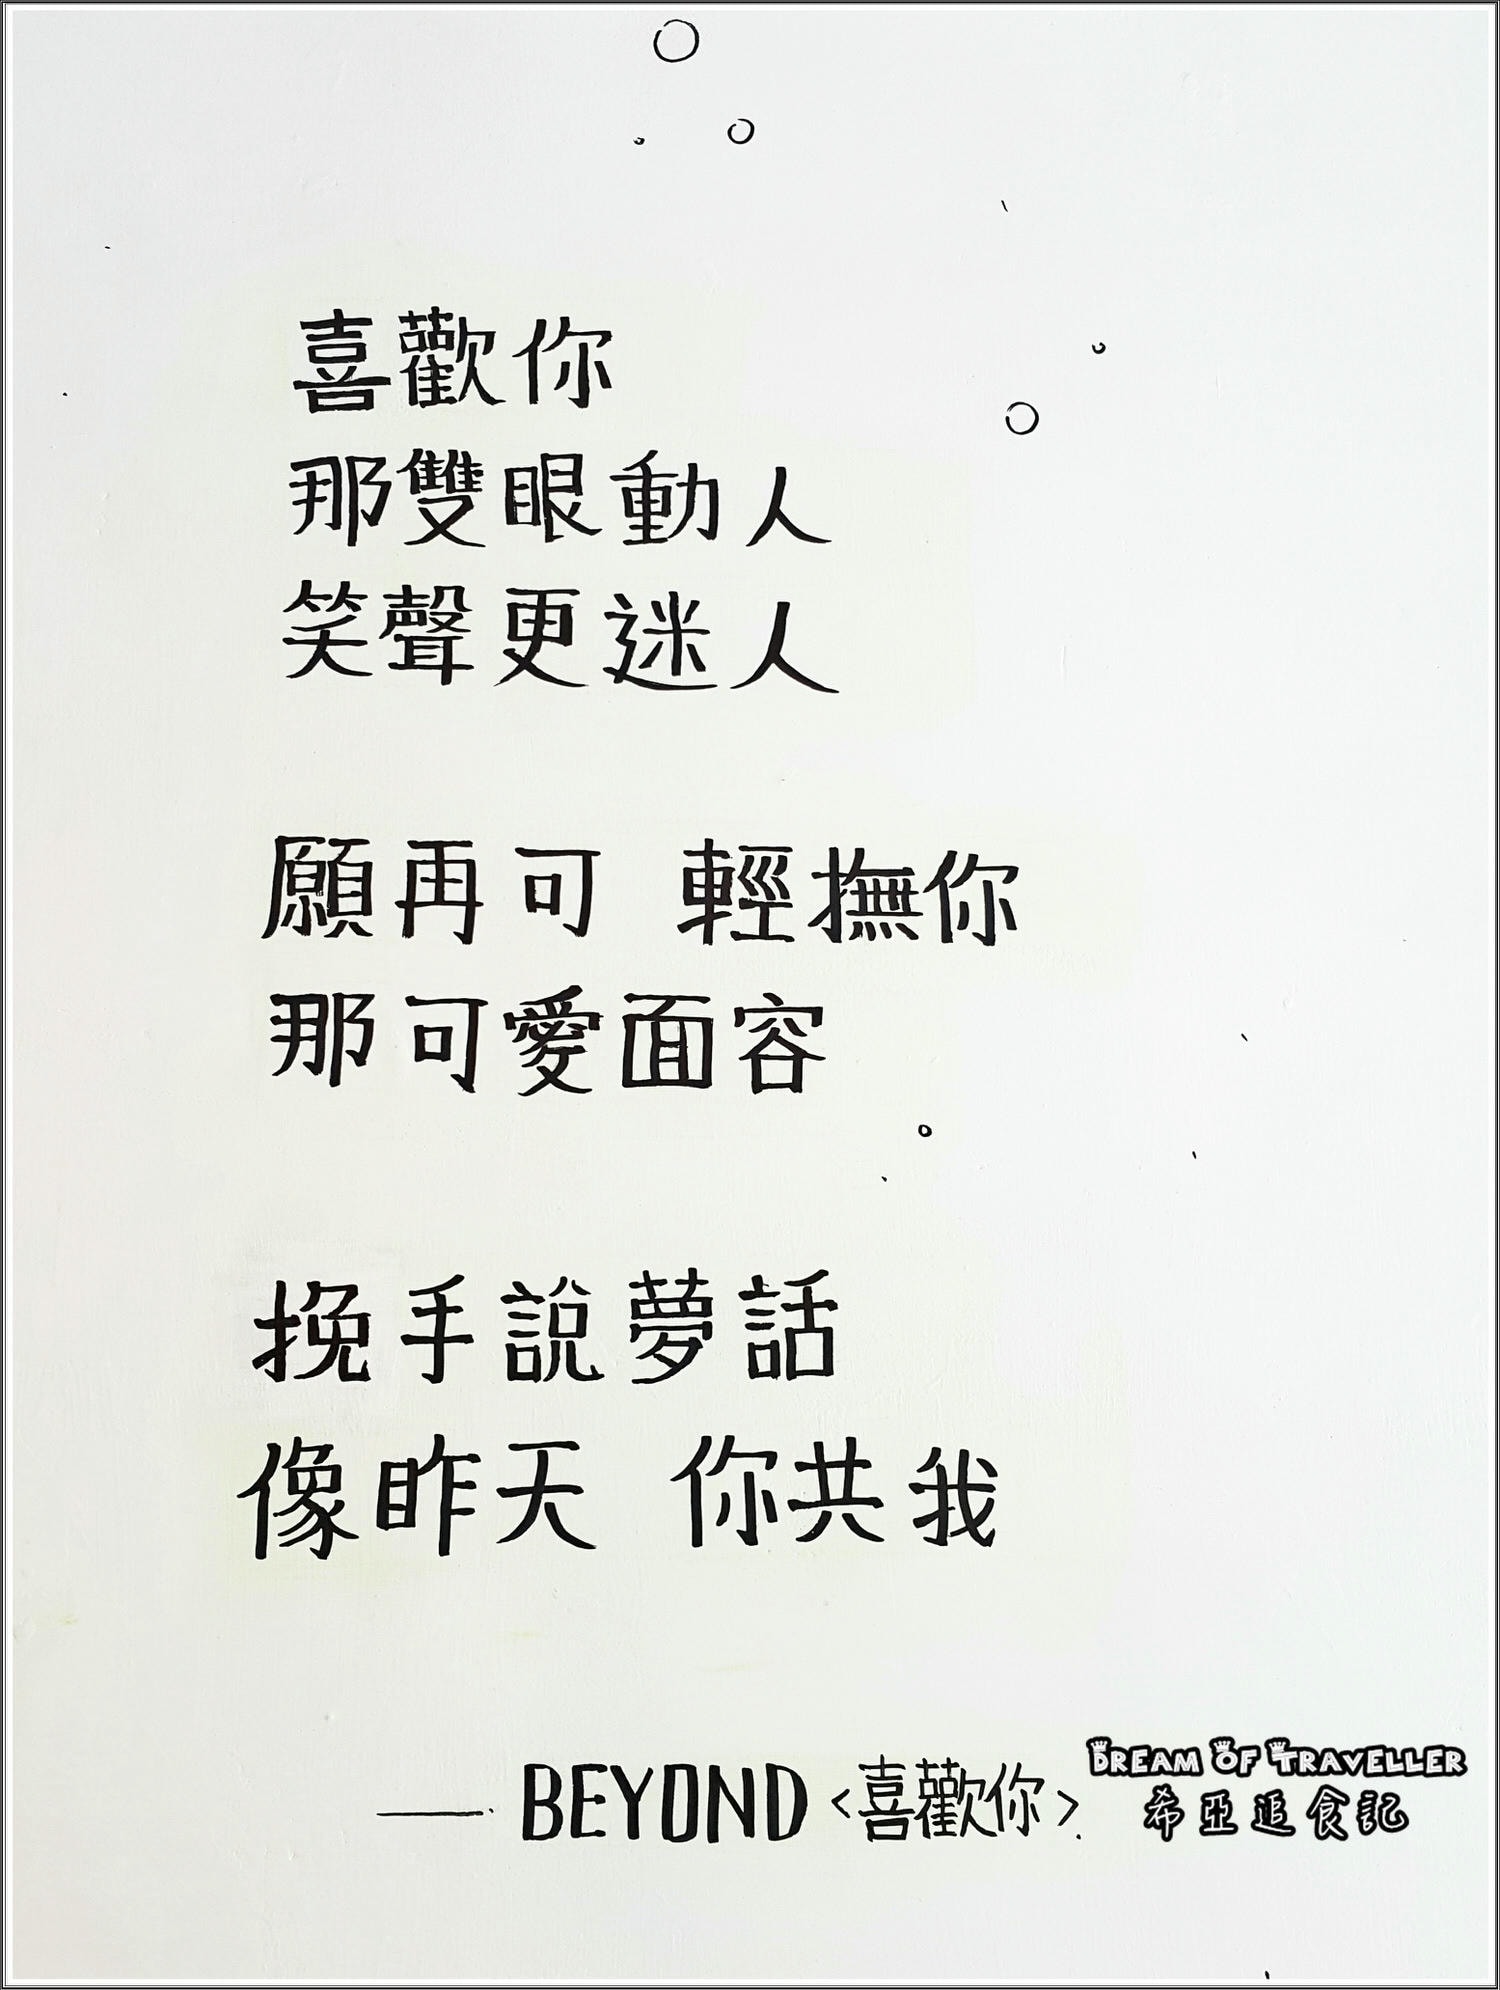 喜歡你
那雙眼動人
笑聲更迷人
願再可 輕撫你
那可愛面容
挽手說夢話
像昨天 你共我
—— BEYOND <喜歡你>
DREAM OF TRAVELLER
希亞追食記